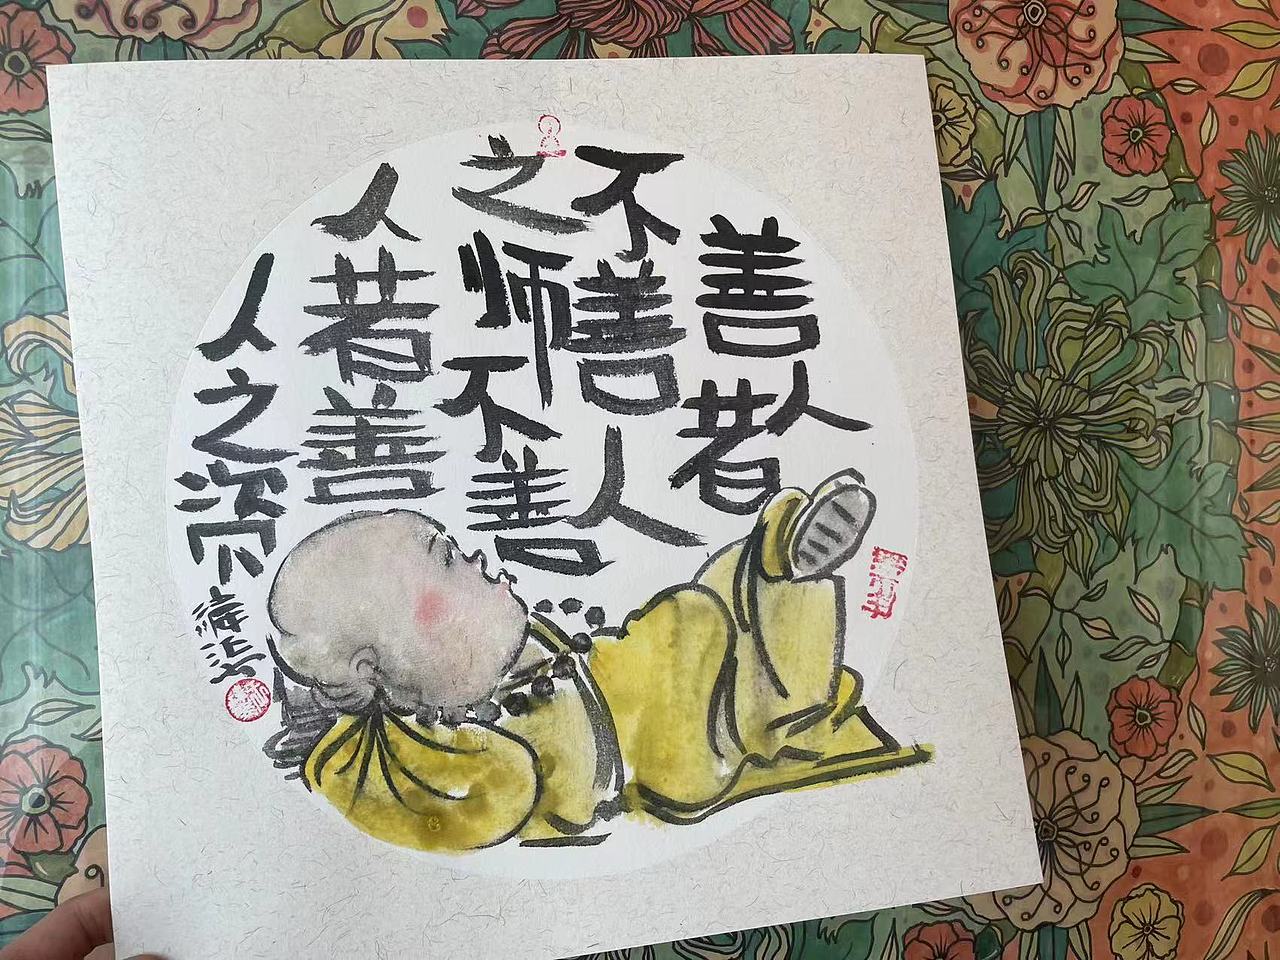 善人者
不善人
之师不善
人者善
人之资